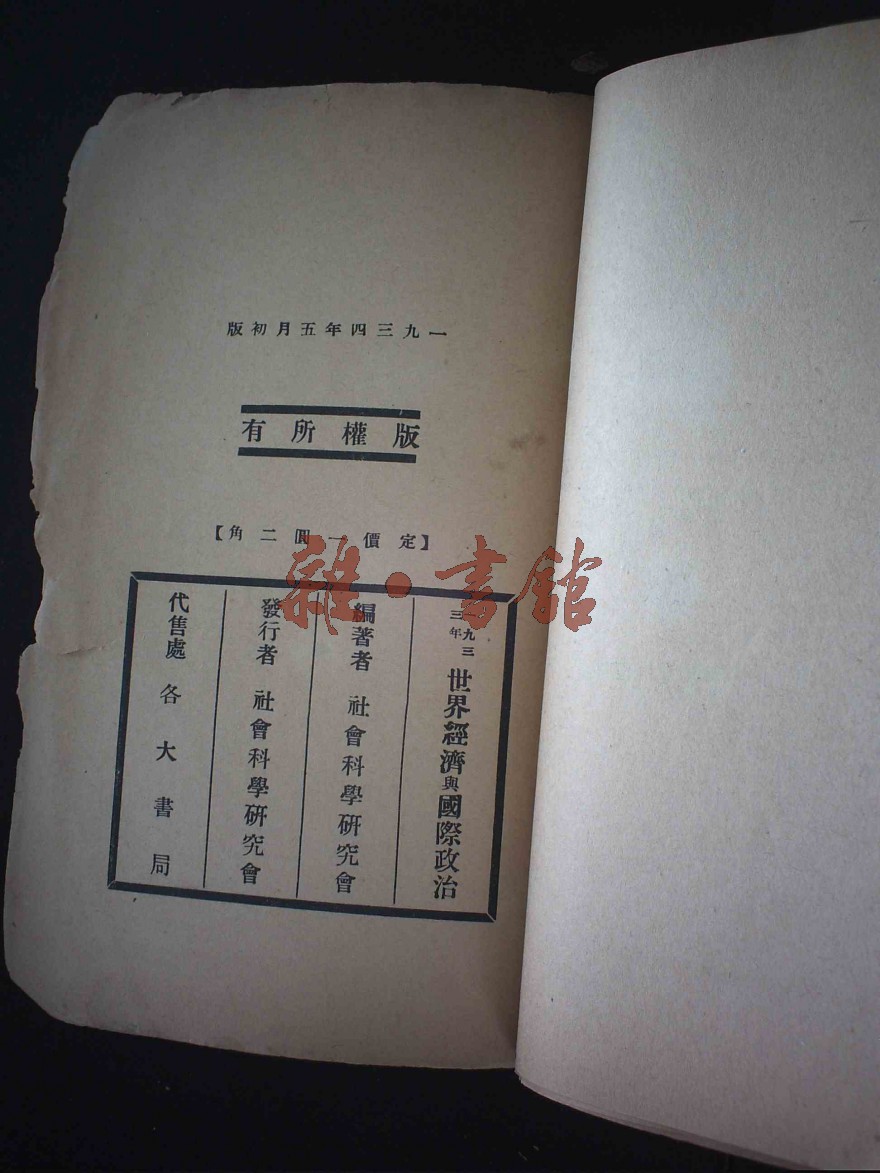 一九三四年五月初版
版權所有
【定價一圓二角】
一九三三年
世界經濟與國際政治
編著者 社會科學研究會
發行者 社會科學研究會
代售處 各大書局
雜·書舘